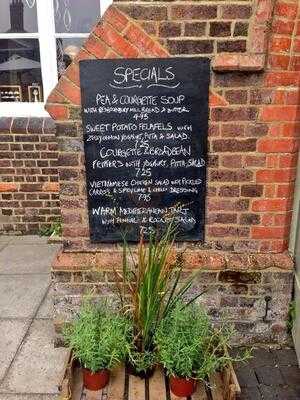 SPECIALS
PEA & COURGETTE SOUP
WITH REPENTANCE HILL BREAD & BUTTER
4.95
SWEET POTATO FELAFELS WITH
YOGURT, PITTA & SALAD.
7.25
COURGETTE & BROADBEAN
FRITTERS WITH YOGHURT, PITTA, SALAD
7.25
VIETNAMESE CHICKEN SALAD WITH PICKLED
CARROT & LIME & CHILLI DRESSING
7.95
WARM MEDITERRANEAN TART
WITH & SALAD
7.25